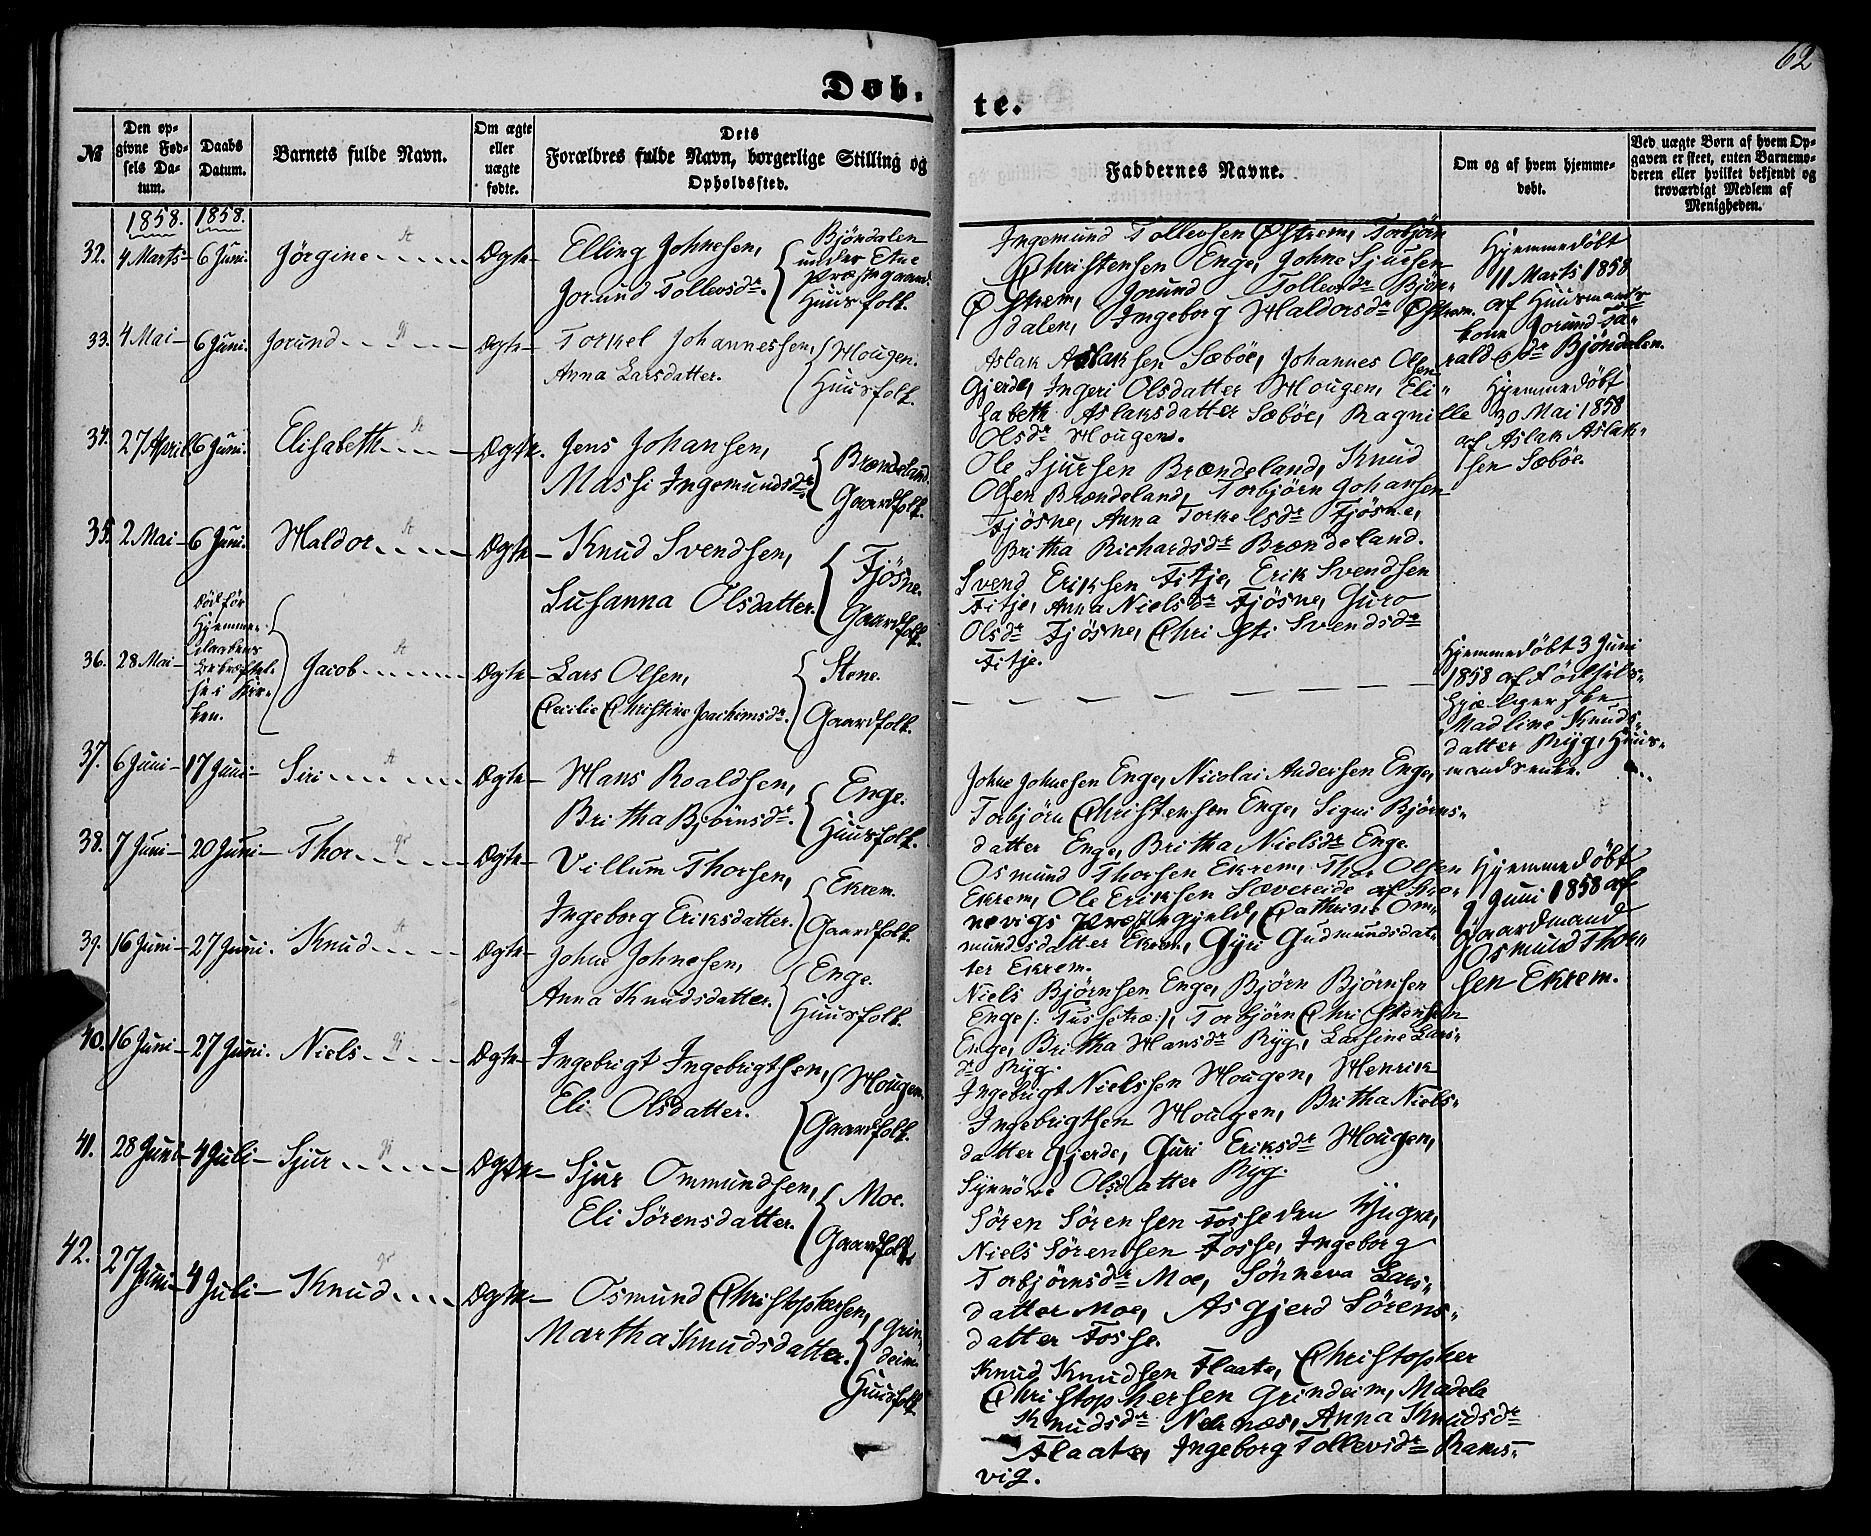 62
Døb-
te.
№
Den op-
givne Fød-
sels Da-
tum.
Daabs
Datum.
Barnets fulde Navn.
Om ægte
eller
uægte
fødte.
Dets
Forældres fulde Navn, borgerlige Stilling og
Opholdssted.
Faddernes Navne.
Om og af hvem hjemme-
døbt.
Ved uægte Børn af hvem Op-
gaven er skeet, enten Barnemo-
deren eller hvilket bekjendt og
troværdigt Medlem af
Menigheden.
1858. 1858.
32. 4 Marts 6 Juni. Jørgine Ægte Elling Johnesen,
Jorund Tollevsdr.
Bjöndalen
under Etne
Præstegaard.
Huusfolk.
Ingemund Tollevsen Østrem, Torbjörn
Christensen Enge, Johne Sjursen
Østrem, Jorund Tollevsdr Bjön-
dalen, Ingeborg Haldorsdr Østrem.
Hjemmedöbt
11 Marts 1858
af Huusmands
kone Jorund Ha-
raldsdr Bjöndalen.
33. 4 Mai 6 Juni. Jorund Ægte Torkel Johannessen,
Anna Larsdatter.
Hougen.
Huusfolk.
Aslak Aslaksen Sæböe, Johannes Olsen
Gjerde, Ingeri Olsdatter Hougen, Eli-
sabeth Aslaksdatter Sæböe, Ragnille
Olsdr Hougen.
Hjemmedöbt
30 Mai 1858
af Aslak Aslak-
sen Sæböe.
34. 27 April 6 Juni. Elisabeth Ægte. Jens Johansen,
Massi Ingemundsdr.
Brændeland.
Gaardfolk.
Ole Sjursen Brændeland, Knud
Olsen Brændeland, Torbjörn Johansen
Fjösne, Anna Torkelsdr Fjösne,
Britha Richardsdr Brændeland.
35. 2 Mai 6 Juni. Haldor Ægte Knud Svendsen,
Susanna Olsdatter.
Fjösne.
Gaardfolk.
Svend Eriksen Fitje, Erik Svendsen
Fitje, Anna Nielsdr Fjösne, Guro
Olsdr Fjösne, Christi Svendsdr
Fitje.
36. 28 Mai
Död för
Hjemme-
daabens
Bekræftel-
se i Kir-
ken.
Jacob Ægte Lars Olsen,
Cecilie Christine Joachimsdr.
Stene.
Gaardfolk.
Hjemmedöbt 3 Juni
1858 af Födsels-
hjælpersken
Madline Knuds-
datter Ryg, Huus-
mandsenke.
37. 6 Juni 17 Juni Siri Ægte Hans Roaldsen,
Britha Bjørnsdr.
Enge.
Huusfolk.
Johne Johnesen Enge, Nicolai Andersen Enge,
Torbjörn Christensen Enge, Sigri Bjørns-
datter Enge, Britha Nielsdr Enge.
38. 7 Juni 20 Juni Thor Ægte Villum Thorsen,
Ingeborg Eriksdatter.
Ekrem.
Gaardfolk.
Osmund Thorsen Ekrem, Thor Olsen
Ekrem, Ole Eriksen Sævereide af Sko-
nevigs Præstegjeld, Cathrine Om-
mundsdatter Ekrem, Gyri Gudmundsdat-
ter Ekrem.
Hjemmedöbt
9 Juni 1858 af
Gaardmand
Osmund Thor-
sen Ekrem.
39. 16 Juni 27 Juni. Knud Ægte Johne Johnesen,
Anna Knudsdatter.
Enge.
Huusfolk.
Niels Bjørnsen Enge, Bjørn Bjørnsen
Enge /: Tussetræ:/, Torbjörn Christensen
Enge, Britha Hansdr Ryg, Larsine Lars-
dr Ryg.
40. 16 Juni 27 Juni. Niels Ægte Ingebrigt Ingebrigtsen,
Eli Olsdatter.
Hougen.
Gaardfolk.
Ingebrigt Nielssen Hougen, Henrik
Ingebrigtsen Hougen, Britha Niels-
datter Gjerde, Guri Eriksdr Hougen,
Synnöve Olsdatter Ryg.
41. 28 Juni 4 Juli Sjur Ægte Sjur Ommundsen,
Eli Sörensdatter.
Moe.
Gaardfolk.
Sören Sörensen Fosse den Yngre,
Niels Sörensen Fosse, Ingeborg
Torbjørnsdr Moe, Sönneva Lars-
datter Moe, Asgjerd Sörens-
datter Fosse.
42. 27 Juni 4 Juli Knud Ægte Osmund Christophersen,
Martha Knudsdatter.
Grin-
deim.
Huusfolk.
Knud Knudsen Flaate, Christopher
Christophersen Grindeim, Madela
Knudsdr Nernæs, Anna Knudsdr
Flaate, Ingeborg Tollevsdr Rams-
vig.